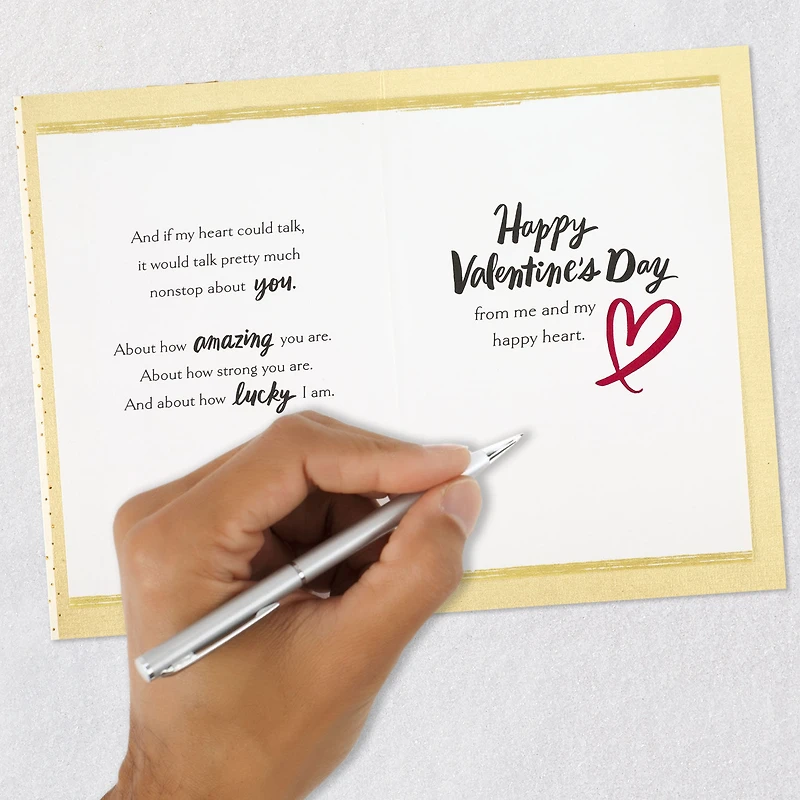 And if my heart could talk,
it would talk pretty much
nonstop about you.
About how amazing you are.
About how strong you are.
And about how lucky I am.
Happy
Valentine's Day
from me and my
happy heart.